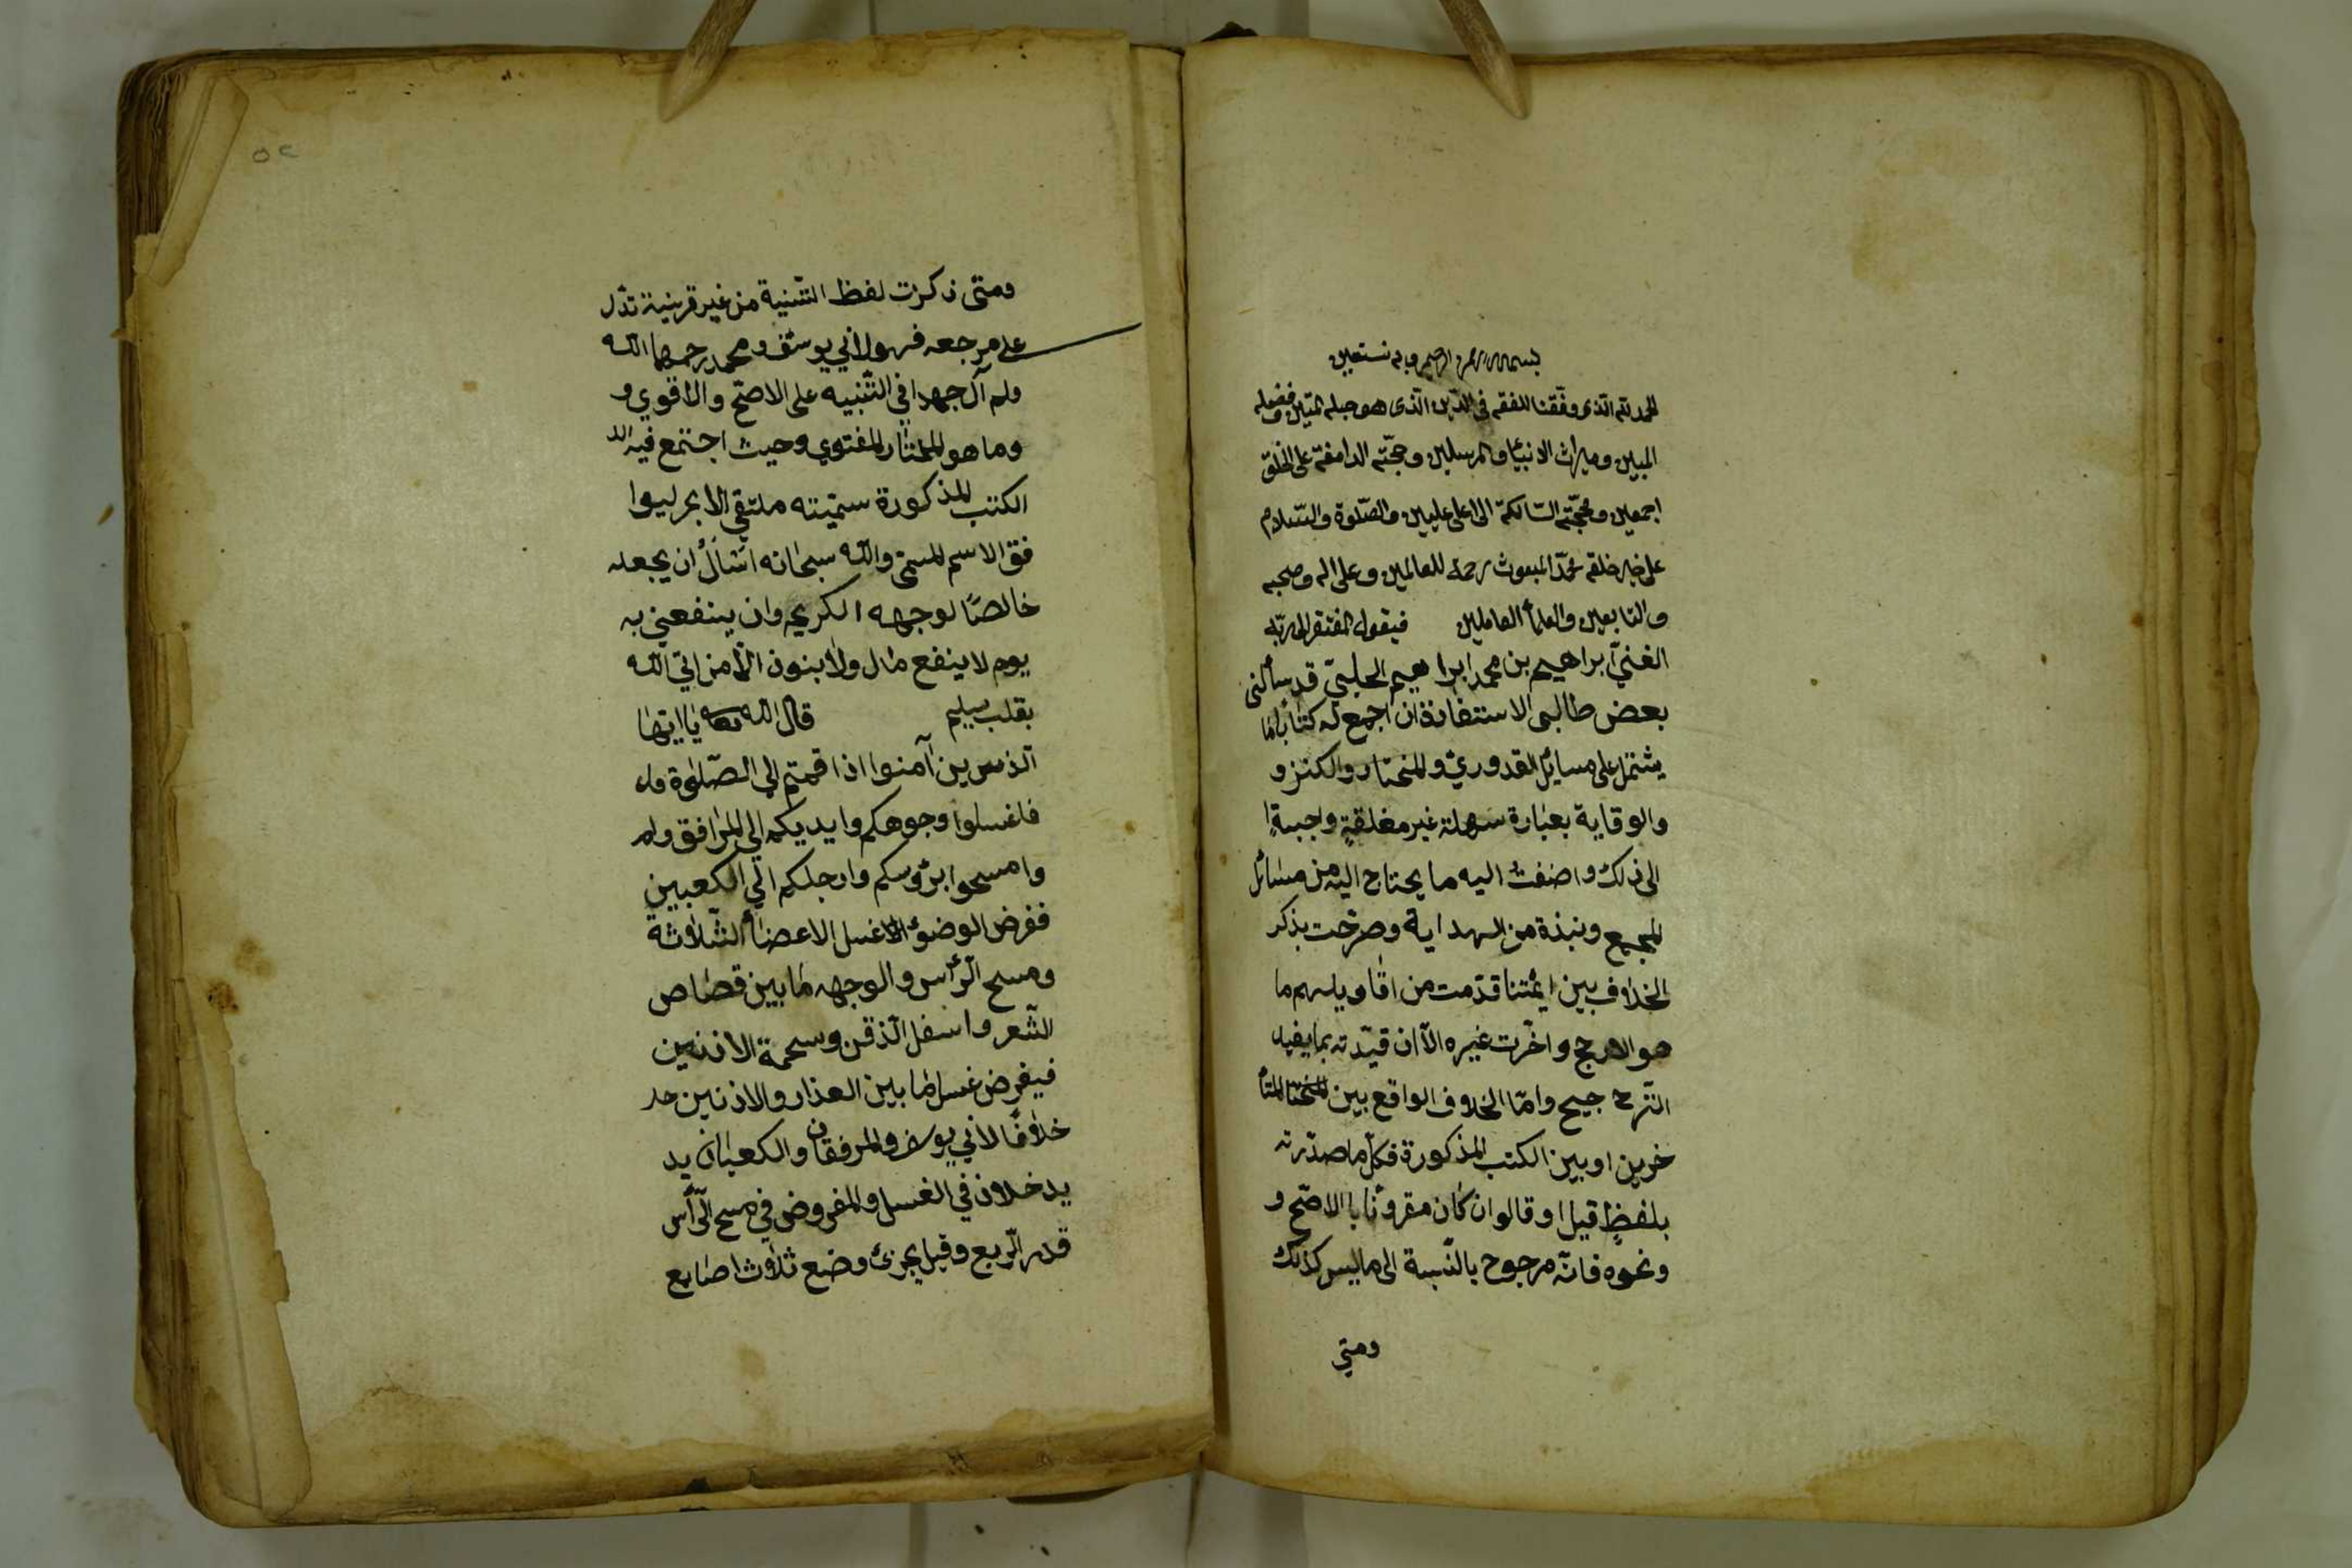 بسم الله الرحمن الرحيم وبه نستعين
الحمد لله الذى وفقنا للفقه في الدّين الّذى هو حبله المتين وفضله
المبين وميراث الانبيٓا والمرسلين وحجّته الدامغة على الخلق
اجمعين ومحجّته السّالكة الى اعلى عليين والصّلوة والسّلام
على خير خلقه محمّد المبعوث رحمة للعالمين وعلى اله وصحبه
والتابعين والعلمأ العاملين فيقول المفتقر الى ربّه
الغنيّ ابراهيم بن محمد ابراهيم الحلبيّ قد سألنى
بعض طالبى الاستفادة ان اجمع له كتابًا
يشتمل على مسائل القدوريّ والمختار والكنز و
والوقاية بعبارة سهلة غير مغلقةٍ واجبةٍ
الى ذلك واضفت اليه ما يحتاج اليه من مسائل
المجمع ونبذة من الهداية وصرّحت بذكر
الخلاف بين ائمّتنا قدّمت من اقاويلهم ما
هو الارجح واخّرت غيره الّا ان قيّدته بما يفيد
التّرح جيح وامّا الخلاف الواقع بين المتأ
خرين او بين الكتب المذكورة فكلّ ما صدّرته
بلفظٍ قيل او قالوا ان كان مقرونًا با الاصّح و
ونحوه فانّه مرجوح بالنّسبة الى ما ليس كذلك
ومتي
ومتى ذكرت لفظ التثنية من غير قرينية تدّل
على مرجعه فهو لابي يوسف ومحمد رحمهما الله
ولم آل جهدا في التّنبيه على الاصحّ والاقوي و
وما هو المختار للفتوي وحيث اجتمع فيه
الكتب المذكورة سمّيته ملتقي الابحر ليوا
فق الاسم المسمّى والله سبحانه اسٔال ان يجعله
خالصًا لوجهه الكريم وان ينفعني به
يوم لا ينفع مال ولا بنون الّا من اتي الله
بقلب سليم قال الله تعالى يا ايّها
الّذين آمنوا اذا قمتم الي الصّلوة
فاغسلوا وجوهكم وايديكم الي المرافق
وامسحوا برؤسكم وارجلكم الي الكعبين
ففرض الوضؤ غسل الاعضأ الثّلاثة
ومسح الرّأس والوجهه ما بين قصاص
الشّعر واسفل الذّقن وسحمة الاذنين
فيفرض غسل ما بين العذار والاذنين
خلافًا لابي يوسف والمرفقان والكعبان يد
يدخلان في الغسل والمفروض في مسح الّرّأس
قدر الّربع وقيل يجزئ وضع ثلاث اصابع